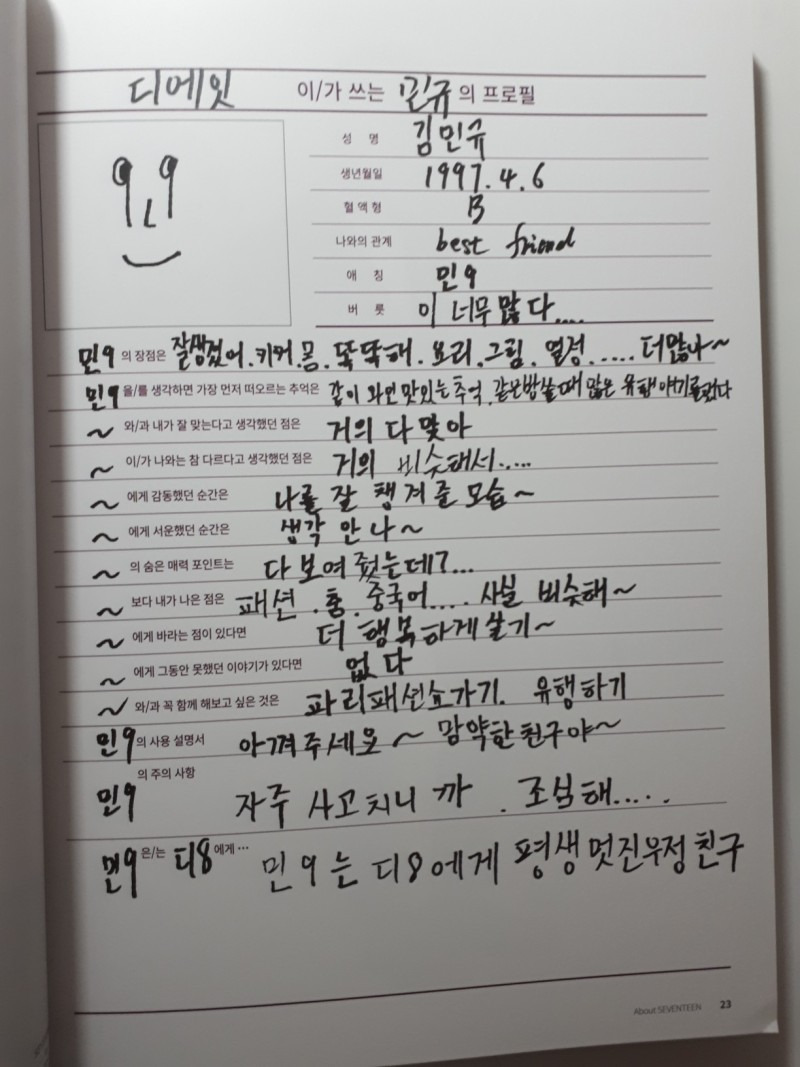 디에잇 이/가 쓰는 민규의 프로필
성 명 김민규
생년월일 1997.4.6
혈액형 B
나와의 관계 best friend
애 칭 민9
버 릇 이 너무 많다....
민9의 장점은 잘생겼어.키커.몸.뚝뚝해.요리.그림.열정.....더많나~
민9을/를 생각하면 가장 먼저 떠오르는 추억은 같이 와인맛있는추억.같은방쓸때 많은 유쾌
~ 와/과 내가 잘 맞는다고 생각했던 점은 거의 다 맞아
~ 이/가 나와는 참 다르다고 생각했던 점은 거의 비슷해서.....
~ 에게 감동했던 순간은 나를 잘 챙겨줄 모습~
~ 에게 서운했던 순간은 생각 안 나~
~ 의 숨은 매력 포인트는 다 보여줬는데?...
~ 보다 내가 나은 점은 패션.춤.중국어.... 사실 비슷해~
~ 에게 바라는 점이 있다면 더 행복하게살기~
~ 에게 그동안 못했던 이야기가 있다면 없다
~ 와/과 꼭 함께 해보고 싶은 것은 파리패션쇼가기. 유행하기
민9의 사용 설명서 아껴주세요~ 맘약한친구야~
민9의 주의 사항 자주 사고치니까. 조심해.....
민9은/는 디8에게… 민9는 디8에게 평생멋진우정친구
About SEVENTEEN 23